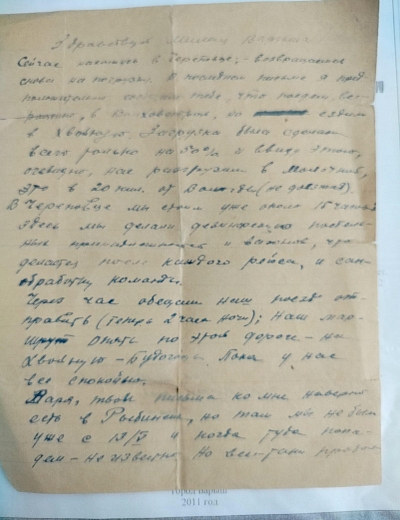 Здравствуй милая Валюша
Сейчас нахожусь в Череповце, - возвращаемся
снова на погрузку. В последнем письме я пред-
тебе, что поедем
в Волховстрой, но ездили
в Хвойную. Загрузка была сделана
всего только на 50% и ввиду этого,
очевидно, нас разгрузили в Молочной,
это в 20 клм. от Вологды (не доезжая).
В Череповце мы стоим уже около 16 часов.
Здесь мы делали дезинфекцию постель-
ных принадлежностей и вагонов, что
делается после каждого рейса, и сан-
обработку команды.
Через час обещают наш поезд от-
править (теперь 2 часа ночи); Наш мар-
шрут опять по этой дороге - на
Хвойную - Пока у нас
все спокойно.
Валя, твои письма ко мне наверно
есть в Рыбинске, но там мы не были
уже с 13/V и когда туда попа-
дем - не известно. Но все-таки
город
2011 год